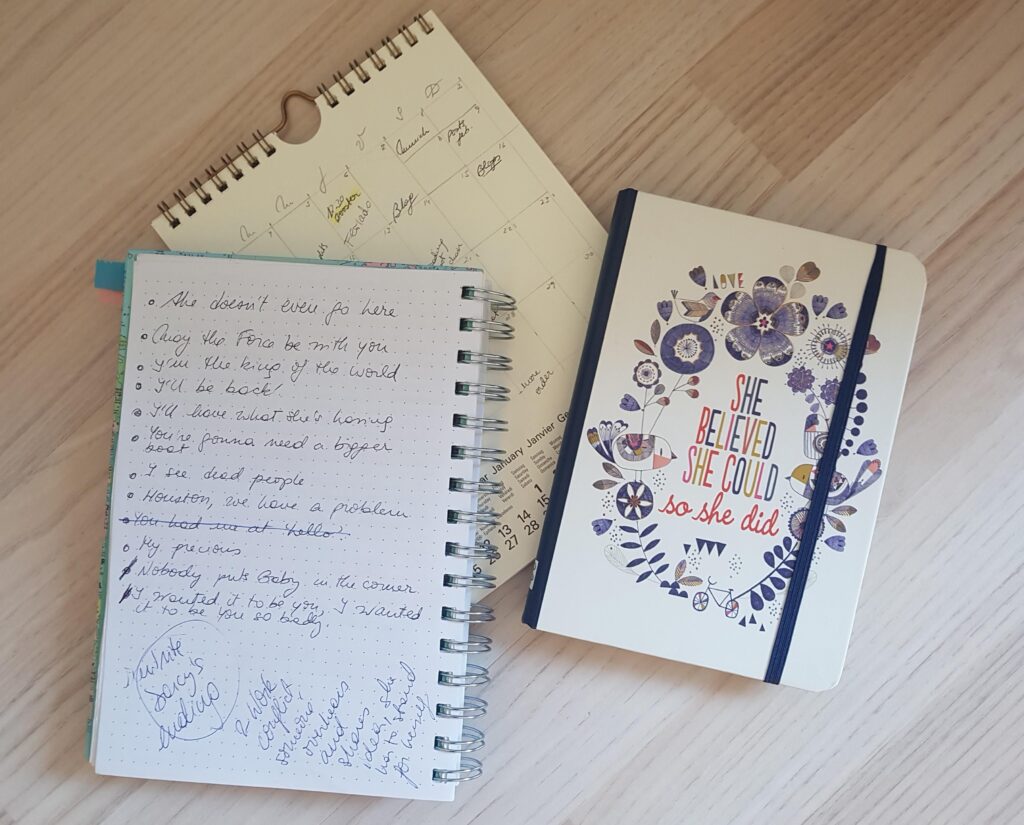 She doesn't even go here
May the Force be with you
I'm the king of the world
I'll be back
I'll have what she's having
You're gonna need a bigger
boat
I see dead people
Houston, we have a problem
You had me at 'hello'
My precious
Nobody puts Baby in the corner
I wanted it to be you, I wanted
it to be you so badly
write
Darcy's
ending
2 work
conflict,
someone
overhears
and
shares
idea, she
has to stand
for herself
M M J V S D
10.30
Feriado
Blog
Blog
more
order
January Janvier
LOVE
SHE
BELIEVED
SHE COULD
so she did